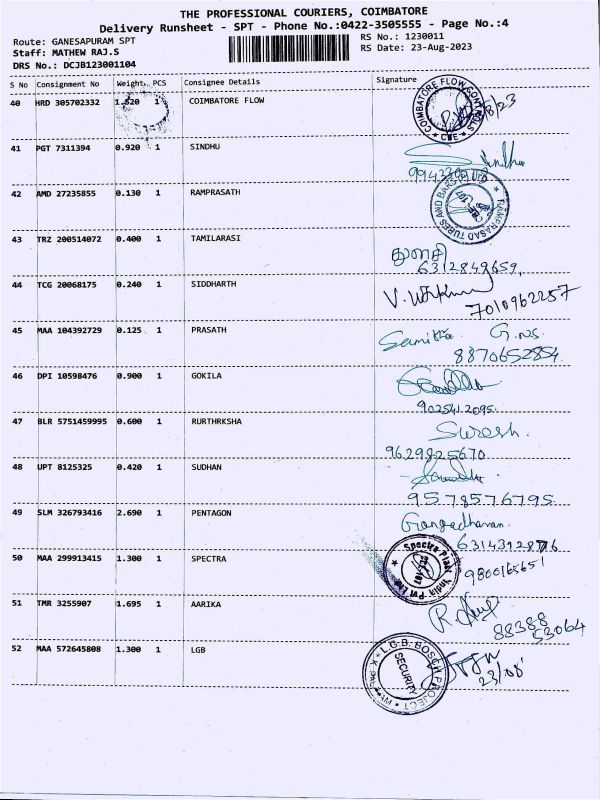 THE PROFESSIONAL COURIERS, COIMBATORE
Delivery Runsheet - SPT - Phone No.:0422-3505555 - Page No.:4
Route: GANESAPURAM SPT RS No.: 1230011
Staff: MATHEW RAJ.S RS Date: 23-Aug-2023
DRS No.: DCJB123001104
S No Consignment No Weight. PCS Consignee Details Signature
40 HRD 305702332 1.520 1 COIMBATORE FLOW
COIMBATORE FLOW CONTROLS CBE
41 PGT 7311394 0.920 1 SINDHU
42 AMD 27235855 0.130 1 RAMPRASATH
RAMPRASAD TUBES AND BARS
43 TRZ 200514072 0.400 1 TAMILARASI
6312849659,
44 TCG 20068175 0.240 1 SIDDHARTH
7010962257
45 MAA 104392729 0.125 1 PRASATH
8870652854.
46 DPI 10598476 0.900 1 GOKILA
9025412095.
47 BLR 5751459995 0.600 1 RURTHRKSHA Suresh.
9629825670
48 UPT 8125325 0.420 1 SUDHAN
9578576795.
49 SLM 326793416 2.690 1 PENTAGON Gangadharan.
50 MAA 299913415 1.300 1 SPECTRA
Spectra Plast India Pvt Ltd
9800165651
51 TMR 3255907 1.695 1 AARIKA
88388
53064
52 MAA 572645808 1.300 1 LGB
L.G.B. BOSCH PROJECT
SECURITY
23/08